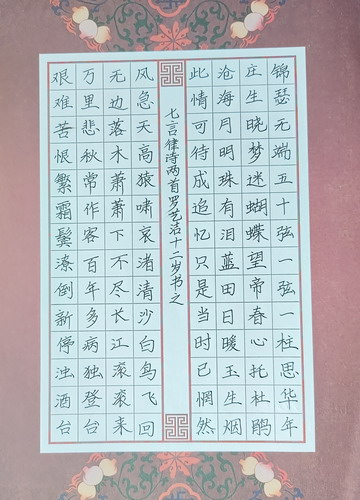 锦瑟无端五十弦一弦一柱思华年
庄生晓梦迷蝴蝶望帝春心托杜鹃
沧海月明珠有泪蓝田日暖玉生烟
此情可待成追忆只是当时已惘然
七言律诗两首罗艺洁十二岁书之
风急天高猿啸哀渚清沙白鸟飞回
无边落木萧萧下不尽长江滚滚来
万里悲秋常作客百年多病独登台
艰难苦恨繁霜鬓潦倒新停浊酒台